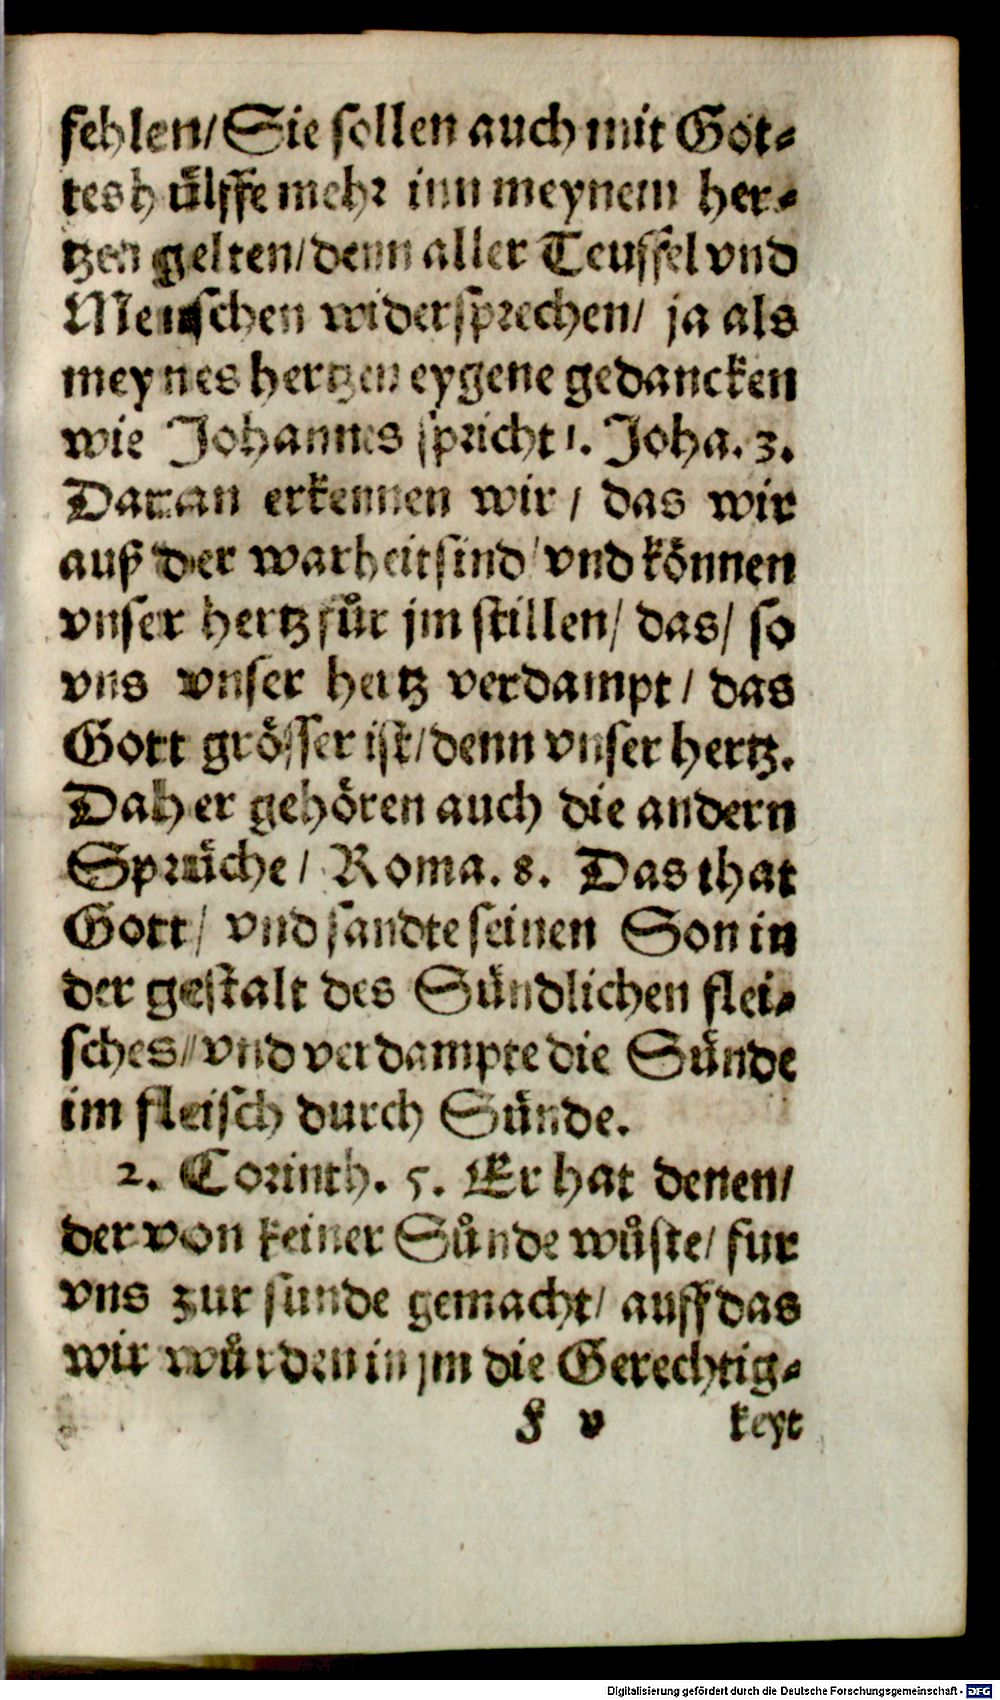 fehlen/ Sie sollen auch mit Got-
tes hülffe mehr inn meynem her-
tzen gelten/ denn aller Teuffel vnd
Menschen widersprechen/ ja als
meynes hertzen eygene gedancken
wie Johannes spricht 1. Joha. 3.
Daran erkennen wir/ das wir
auß der warheit sind/ vnd können
vnser hertz fůr jm stillen/ das/ so
vns vnser hertz verdampt/ das
Gott grösser ist/ denn vnser hertz.
Daher gehören auch die andern
Sprüche/ Roma. 8. Das that
Gott/ vnd sandte seinen Son in
der gestalt des Sündlichen flei-
sches/ vnd verdampte die Sünde
im fleisch durch Sünde.
2. Corinth. 5. Er hat denen/
der von keiner Sůnde wůste/ fur
vns zur sunde gemacht/ auff das
wir wůrden in jm die Gerechtig-
F v keyt
Digitalisierung gefördert durch die Deutsche Forschungsgemeinschaft - DFG